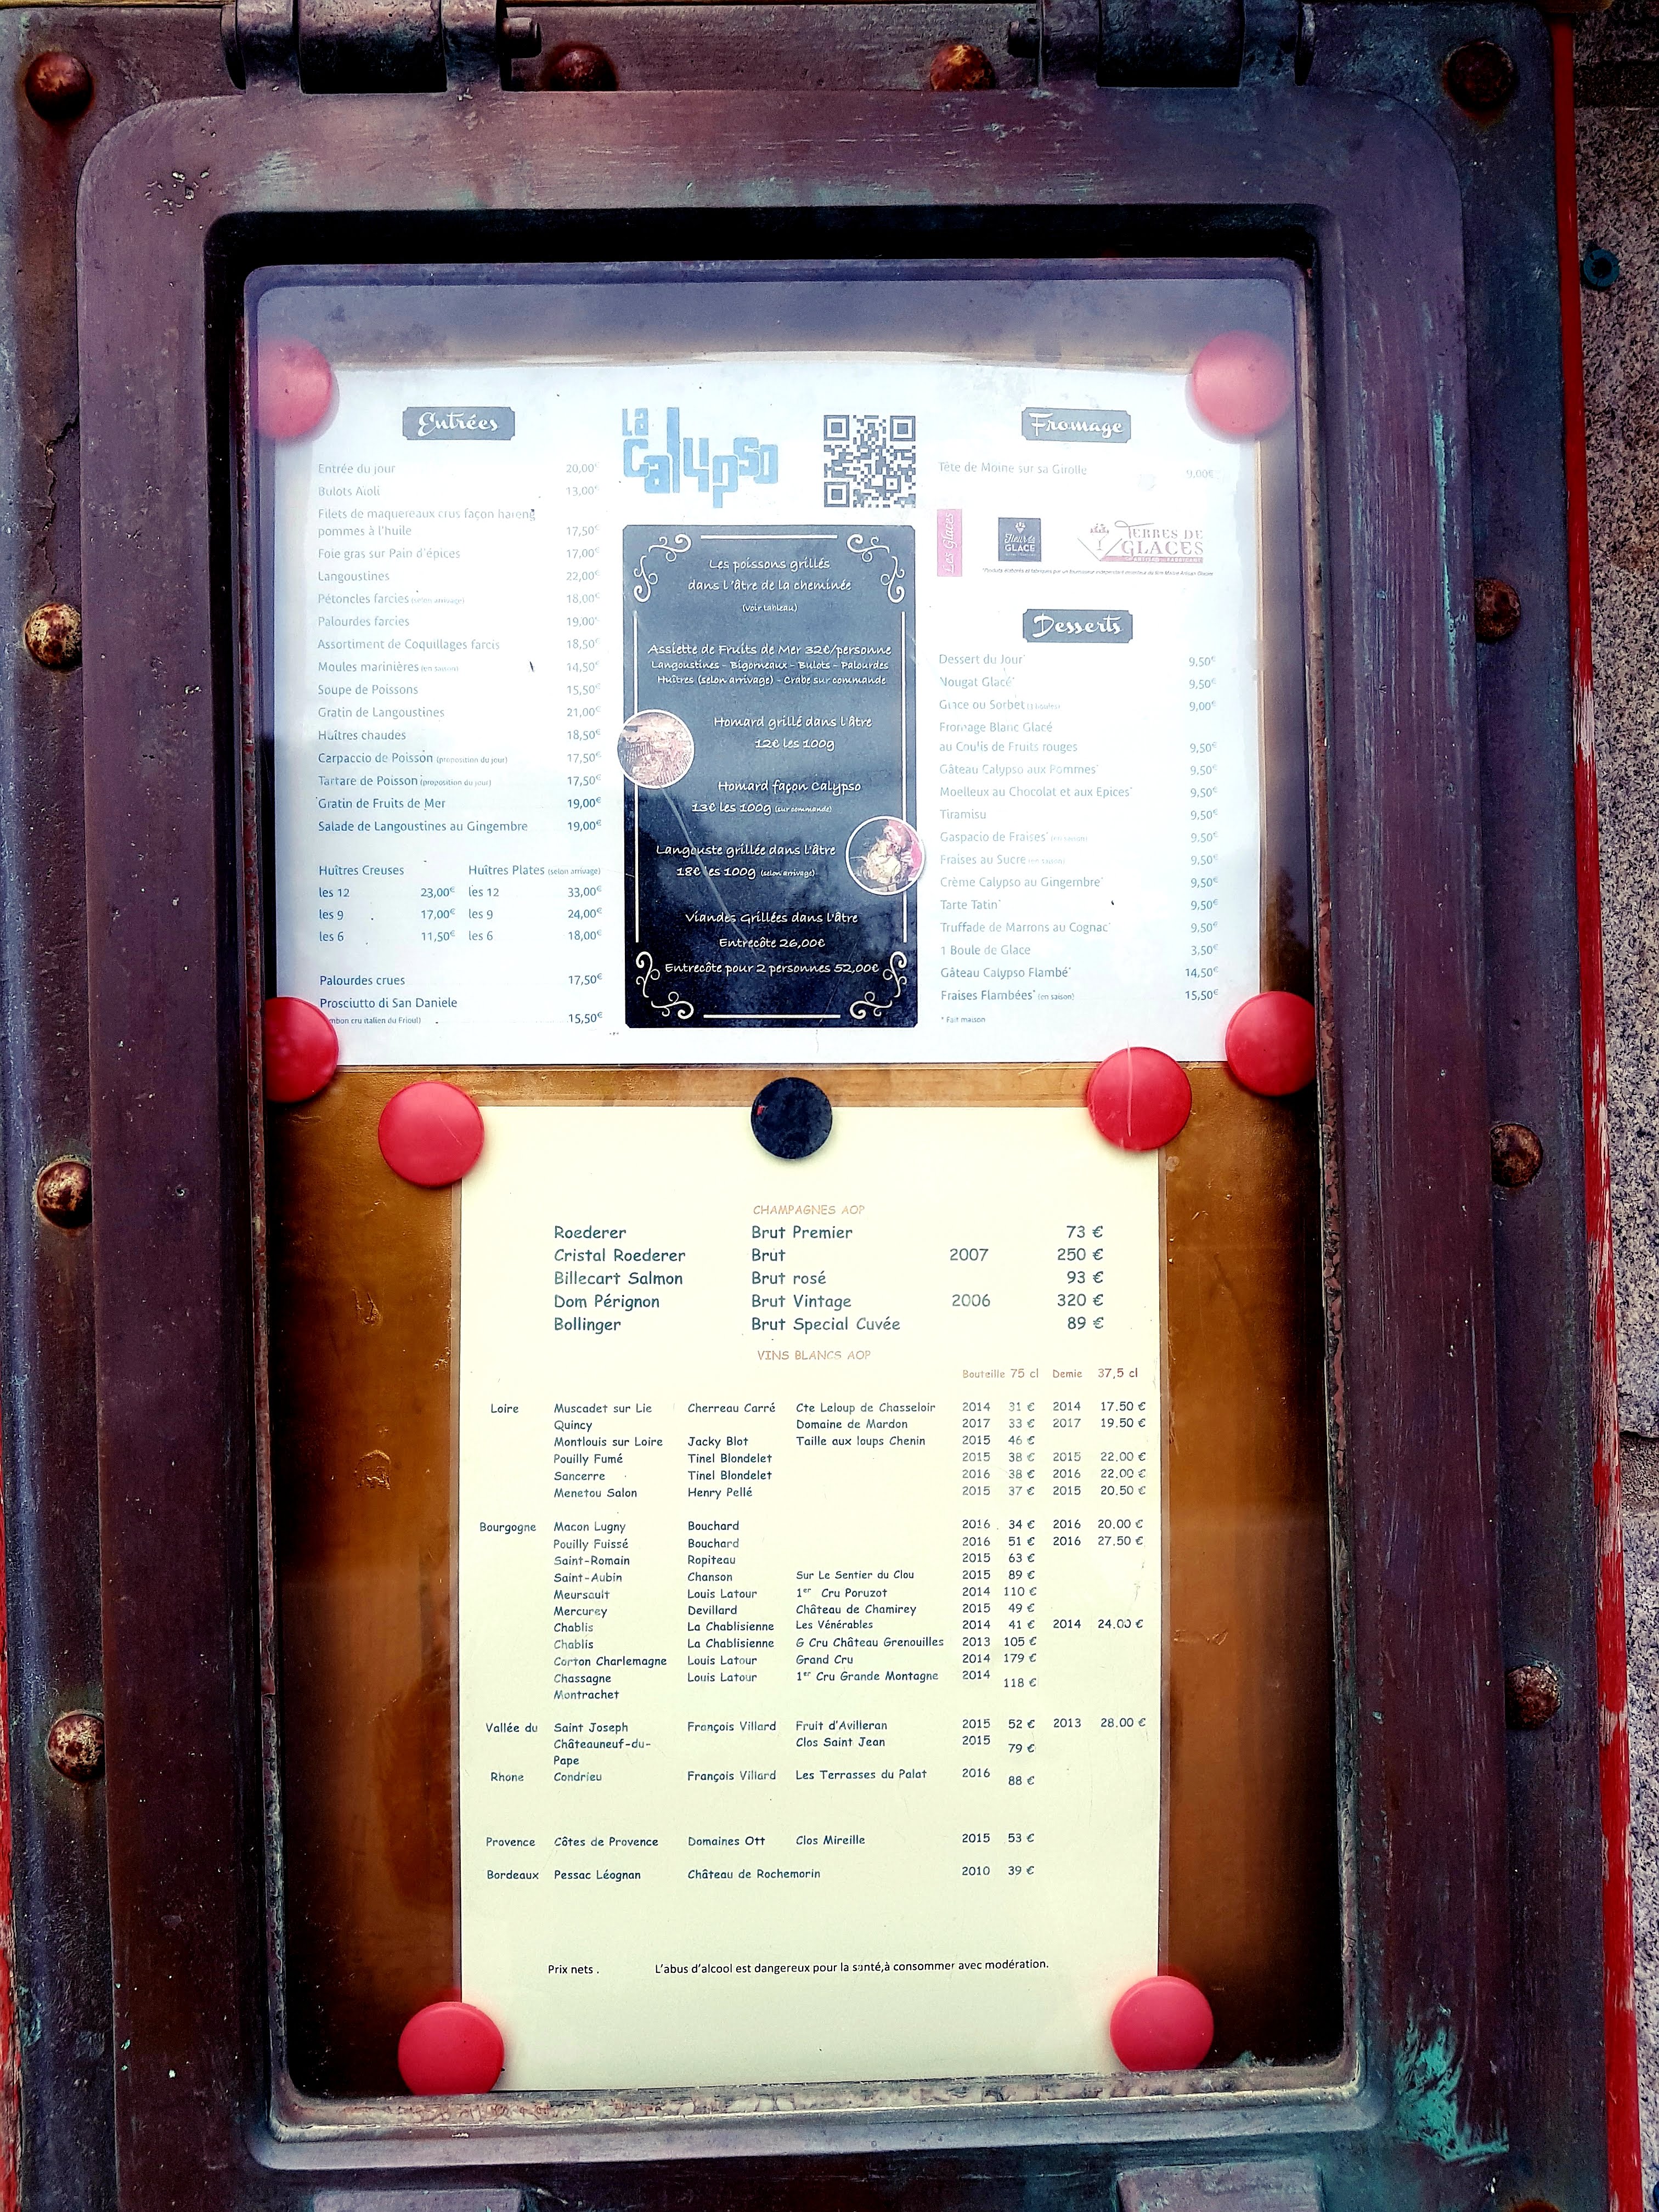 Entrées
Entrée du jour 20,00€
Bulots Aïoli 13,00€
Filets de maquereaux crus façon hareng
pommes à l'huile 17,50€
Foie gras sur Pain d'épices 17,00€
Langoustines 22,00€
Pétoncles farcies (selon arrivage) 18,00€
Palourdes farcies 19,00€
Assortiment de Coquillages farcis 18,50€
Moules marinières (en saison) 14,50€
Soupe de Poissons 15,50€
Gratin de Langoustines 21,00€
Huîtres chaudes 18,50€
Carpaccio de Poisson (proposition du jour) 17,50€
Tartare de Poisson (proposition du jour) 17,50€
Gratin de Fruits de Mer 19,00€
Salade de Langoustines au Gingembre 19,00€
Huîtres Creuses Huîtres Plates (selon arrivage)
les 12 23,00€ les 12 33,00€
les 9 17,00€ les 9 24,00€
les 6 11,50€ les 6 18,00€
Palourdes crues 17,50€
Prosciutto di San Daniele
mbon cru italien du Frioul) 15,50€
La
Calypso
Les poissons grillés
dans l'âtre de la cheminée
(voir tableau)
Assiette de Fruits de Mer 32€/personne
Langoustines - Bigorneaux - Bulots - Palourdes
Huîtres (selon arrivage) - Crabe sur commande
Homard grillé dans l'âtre
12€ les 100g
Homard façon Calypso
13€ les 100g (sur commande)
Langouste grillée dans l'âtre
18€ les 100g (selon arrivage)
Viandes Grillées dans l'âtre
Entrecôte 26,00€
Entrecôte pour 2 personnes 52,00€
Fromage
Tête de Moine sur sa Girolle 9,00€
Les Glaces
Fleur de
GLACE
TERRES DE
GLACES
ARTISAN - FABRICANT
Desserts
Dessert du Jour* 9,50€
Nougat Glacé* 9,50€
Glace ou Sorbet 9,00€
Fromage Blanc Glacé
au Coulis de Fruits rouges 9,50€
Gâteau Calypso aux Pommes* 9,50€
Moelleux au Chocolat et aux Epices* 9,50€
Tiramisu 9,50€
Gaspacio de Fraises* (en saison) 9,50€
Fraises au Sucre (en saison) 9,50€
Crème Calypso au Gingembre* 9,50€
Tarte Tatin* 9,50€
Truffade de Marrons au Cognac* 9,50€
1 Boule de Glace 3,50€
Gâteau Calypso Flambé* 14,50€
Fraises Flambées* (en saison) 15,50€
* Fait maison
CHAMPAGNES AOP
Roederer Brut Premier 73 €
Cristal Roederer Brut 2007 250 €
Billecart Salmon Brut rosé 93 €
Dom Pérignon Brut Vintage 2006 320 €
Bollinger Brut Special Cuvée 89 €
VINS BLANCS AOP
Bouteille 75 cl Demie 37,5 cl
Loire Muscadet sur Lie Cherreau Carré Cte Leloup de Chasseloir 2014 31 € 2014 17.50 €
Quincy Domaine de Mardon 2017 33 € 2017 19.50 €
Montlouis sur Loire Jacky Blot Taille aux loups Chenin 2015 46 €
Pouilly Fumé Tinel Blondelet 2015 38 € 2015 22.00 €
Sancerre Tinel Blondelet 2016 38 € 2016 22.00 €
Menetou Salon Henry Pellé 2015 37 € 2015 20.50 €
Bourgogne Macon Lugny Bouchard 2016 34 € 2016 20.00 €
Pouilly Fuissé Bouchard 2016 51 € 2016 27.50 €
Saint-Romain Ropiteau 2015 63 €
Saint-Aubin Chanson Sur Le Sentier du Clou 2015 89 €
Meursault Louis Latour 1er Cru Poruzot 2014 110 €
Mercurey Devillard Château de Chamirey 2015 49 €
Chablis La Chablisienne Les Vénérables 2014 41 € 2014 24.00 €
Chablis La Chablisienne G Cru Château Grenouilles 2013 105 €
Corton Charlemagne Louis Latour Grand Cru 2014 179 €
Chassagne Louis Latour 1er Cru Grande Montagne 2014 118 €
Montrachet
Vallée du Saint Joseph François Villard Fruit d'Avilleran 2015 52 € 2013 28.00 €
Châteauneuf-du- Clos Saint Jean 2015 79 €
Pape
Rhone Condrieu François Villard Les Terrasses du Palat 2016 88 €
Provence Côtes de Provence Domaines Ott Clos Mireille 2015 53 €
Bordeaux Pessac Léognan Château de Rochemorin 2010 39 €
Prix nets . L'abus d'alcool est dangereux pour la santé,à consommer avec modération.